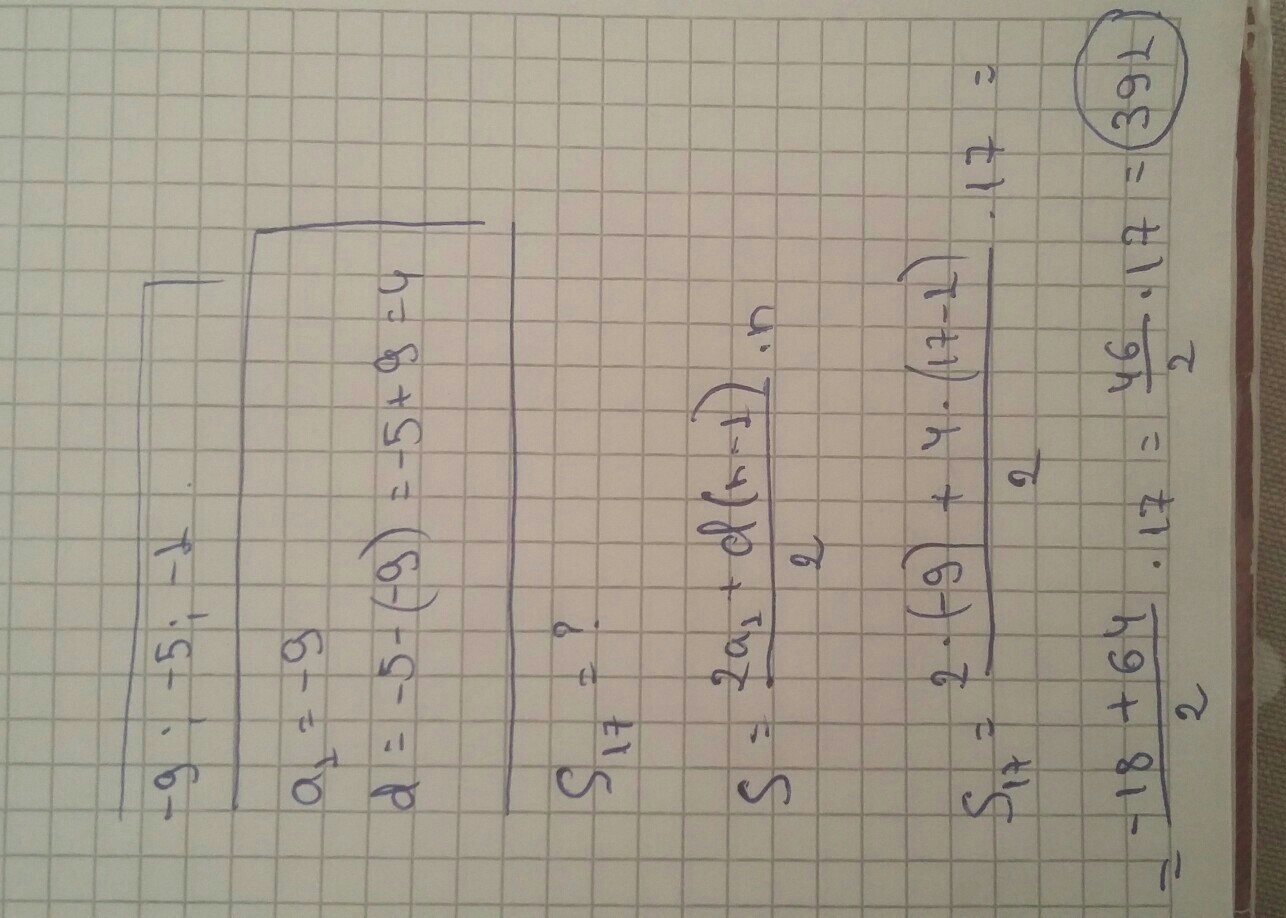 -9; -5; -1
a₁ = -9
d = -5-(-9) = -5+9=4
S₁₇ = ?
S = (2a₁ + d(n-1))/2 · n
S₁₇ = (2·(-9) + 4·(17-1))/2 · 17 =
= (-18 + 64)/2 · 17 = 46/2 · 17 = 391